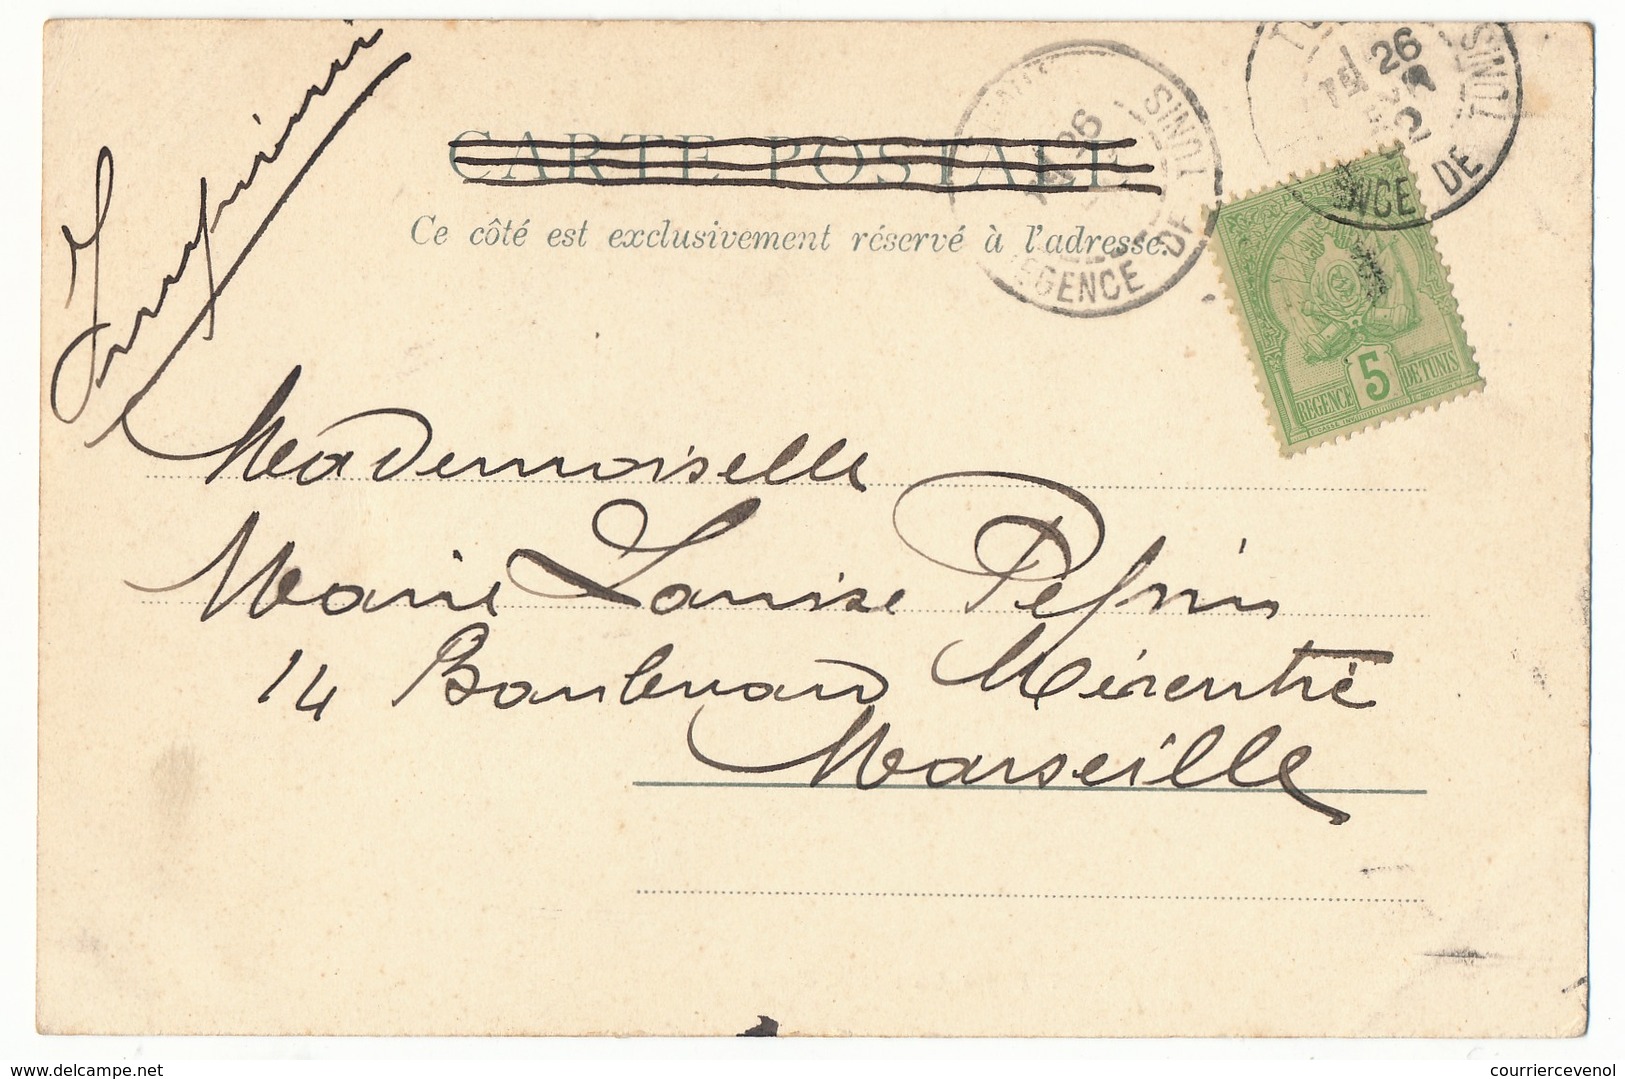 Imprimé
CARTE POSTALE
Ce côté est exclusivement réservé à l'adresse.
TUNIS
26
REGENCE DE
TUNIS
26
ENCE DE
POSTES
REGENCE 5 DE TUNIS
Mademoiselle
Marie Louise
14 Boulevard Mérentié
Marseille
www.delcampe.net
courriercevenol